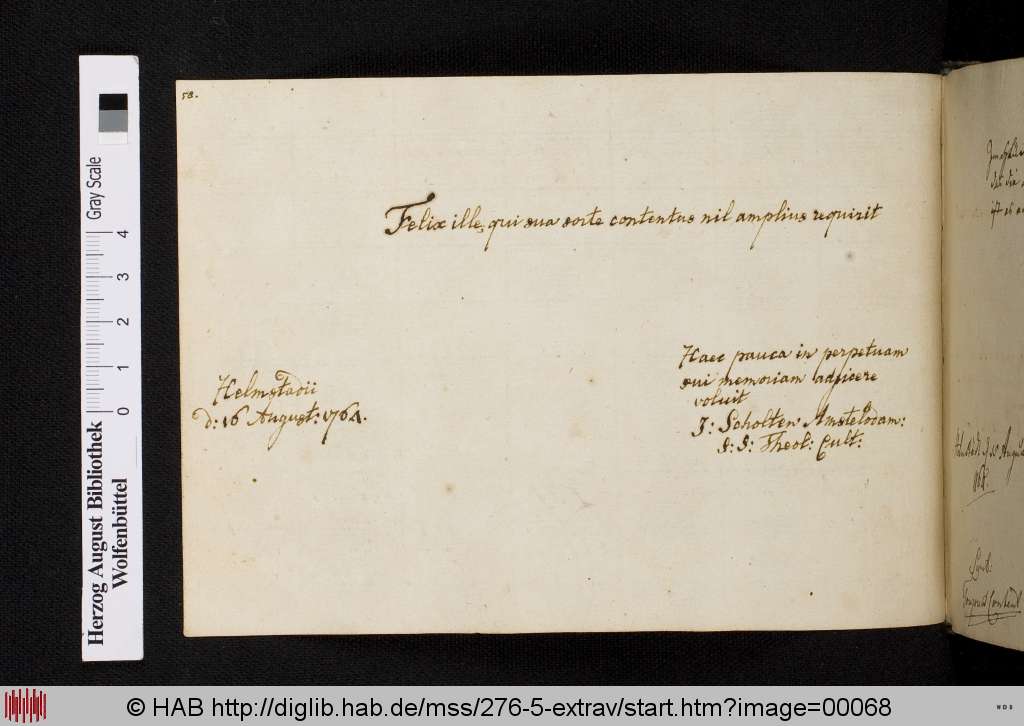 58.
Felix ille, qui sua sorte contentus nil amplius requirit
Haec pauca in perpetuam
sui memoriam adjicere
voluit
J: Scholten Amstelodam:
S: S: Theol: Cult:
Helmstadii
d: 16 August: 1764.
Herzog August Bibliothek
Wolfenbüttel
Gray Scale
0 1 2 3 4
© HAB http://diglib.hab.de/mss/276-5-extrav/start.htm?image=00068